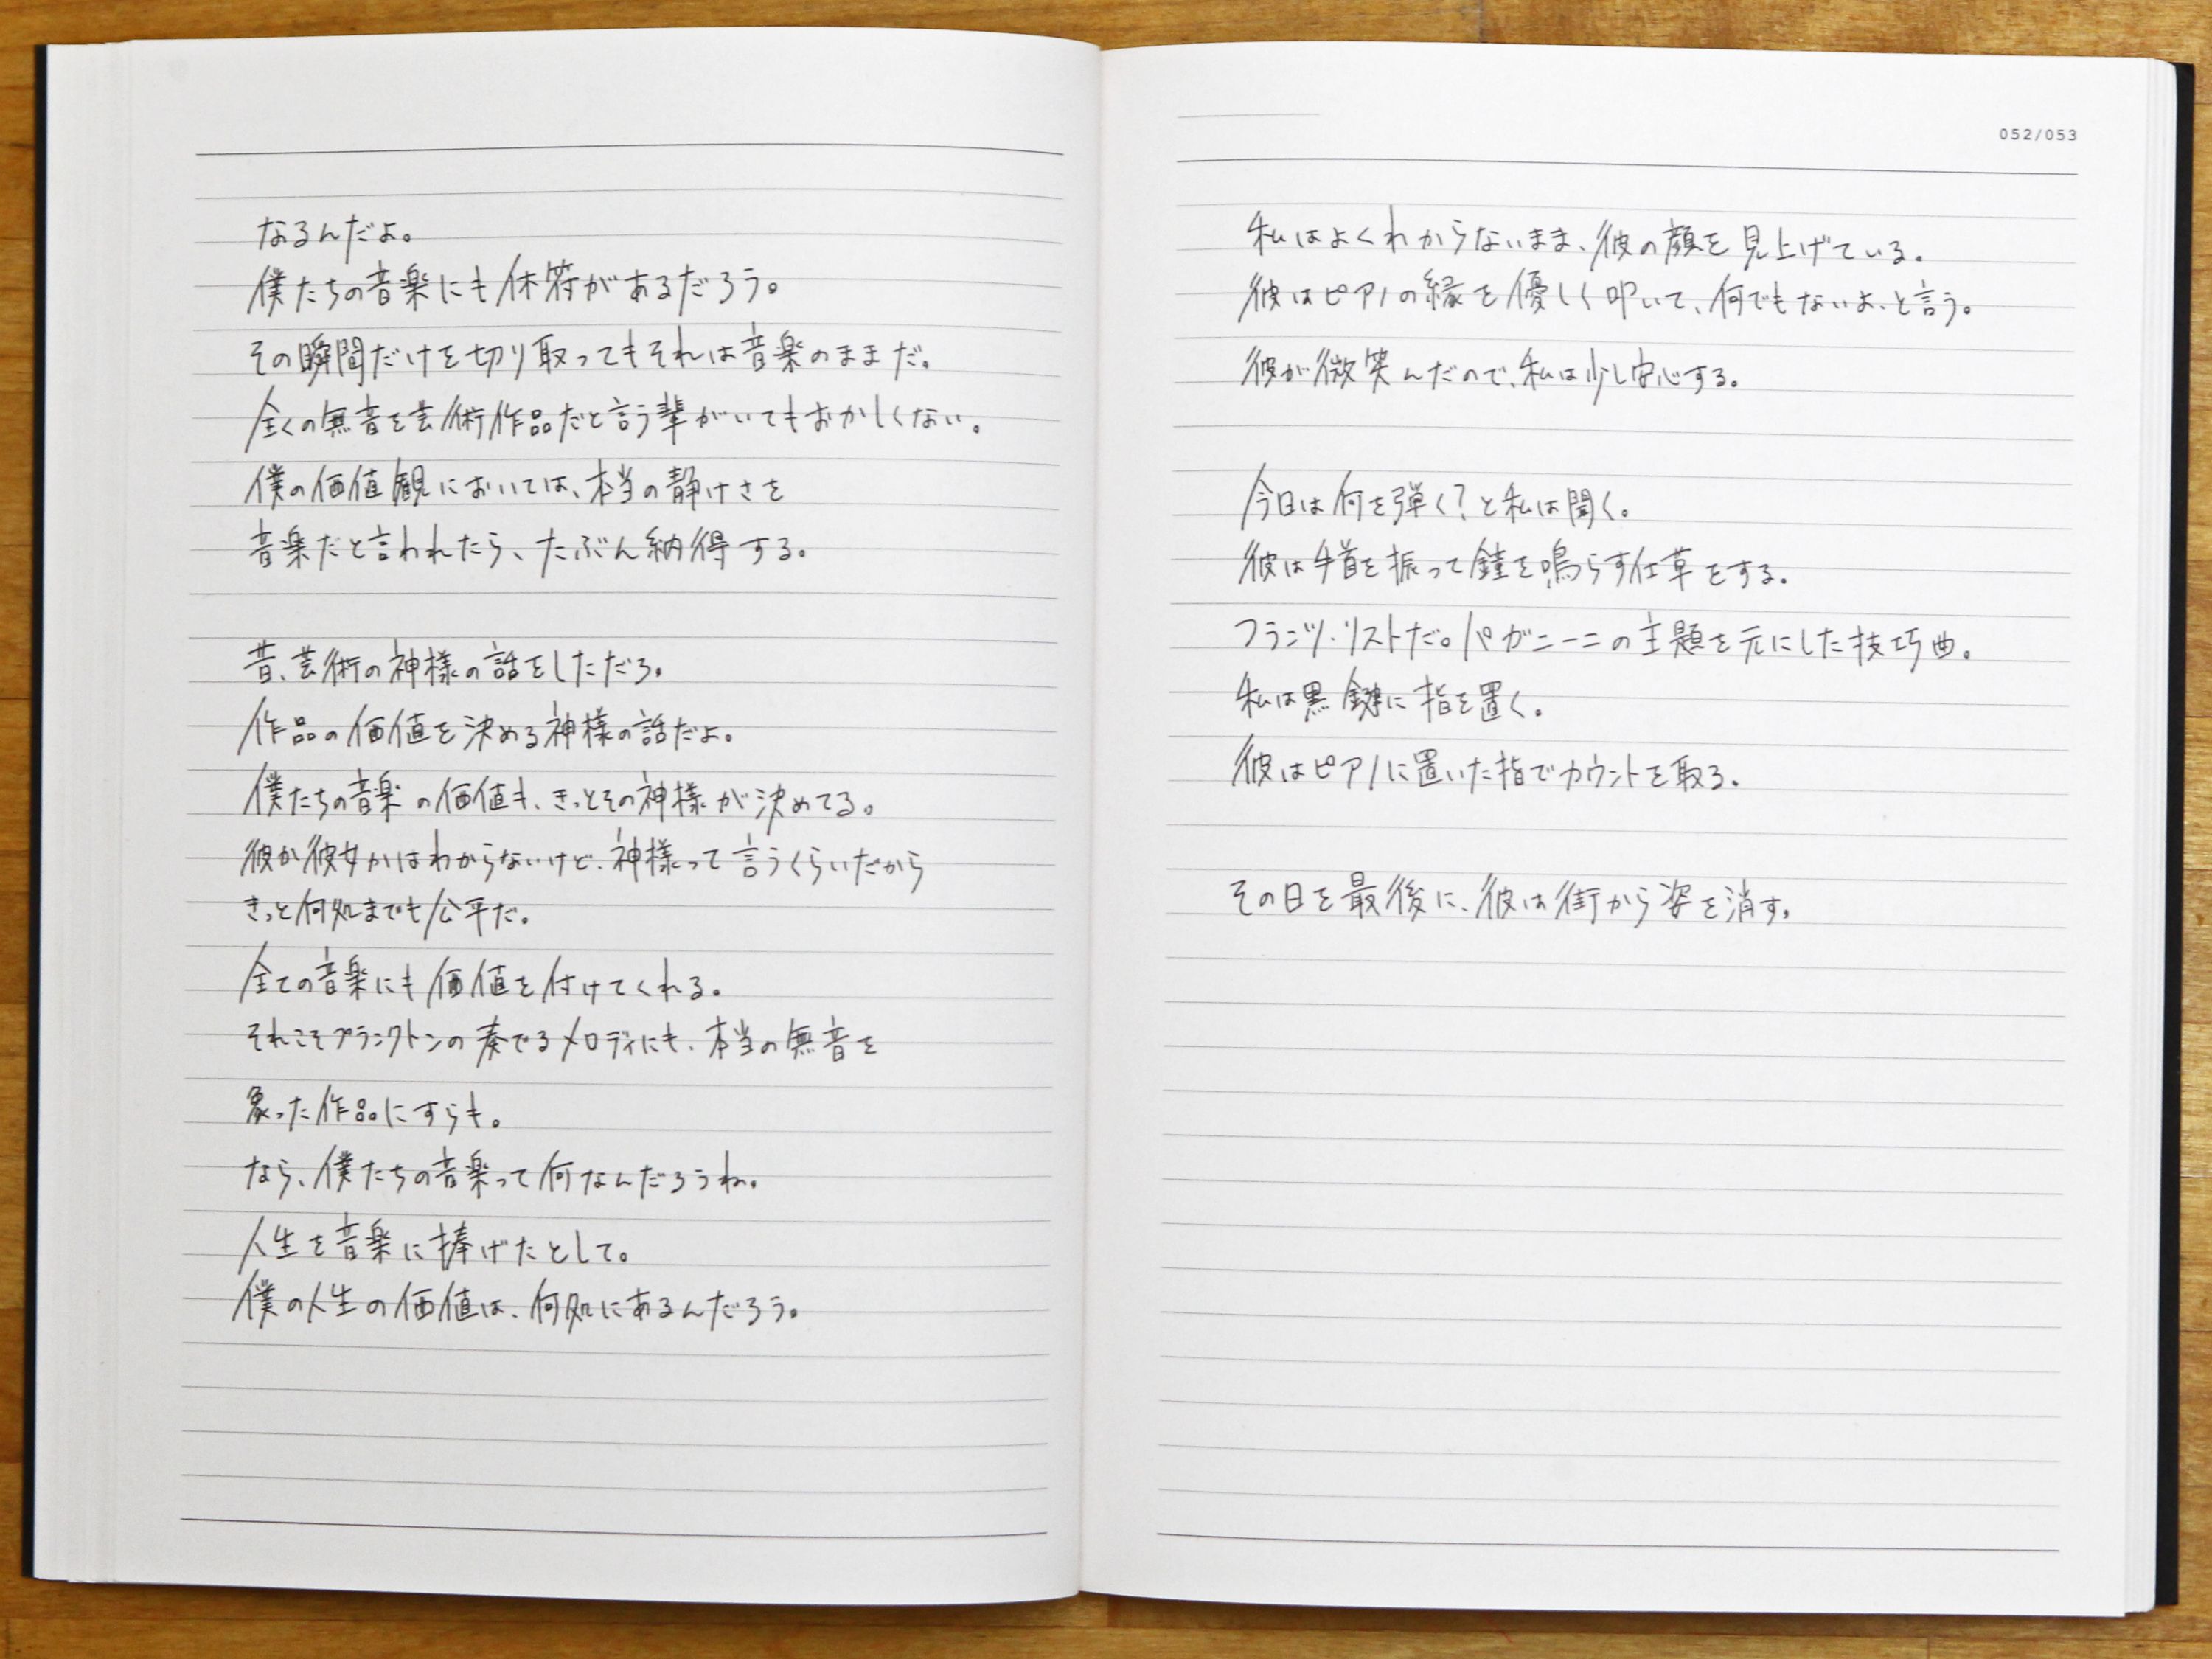 なるんだよ。
僕たちの音楽にも休符があるだろう。
その瞬間だけを切り取ってもそれは音楽のままだ。
全くの無音を芸術作品だと言う輩がいてもおかしくない。
僕の価値観においては、本当の静けさを
音楽だと言われたら、たぶん納得する。
昔、芸術の神様の話をしただろ。
作品の価値を決める神様の話だよ。
僕たちの音楽の価値も、きっとその神様が決めてる。
彼か彼女かはわからないけど、神様って言うくらいだから
きっと何処までも公平だ。
全ての音楽にも価値を付けてくれる。
それこそプランクトンの奏でるメロディにも、本当の無音を
象った作品にすらも。
なら、僕たちの音楽って何なんだろうね。
人生を音楽に捧げたとして。
僕の人生の価値は、何処にあるんだろう。
052/053
私はよくわからないまま、彼の顔を見上げている。
彼はピアノの縁を優しく叩いて、何でもないよ、と言う。
彼が微笑んだので、私は少し安心する。
今日は何を弾く?と私は聞く。
彼は手首を振って鐘を鳴らす仕草をする。
フランツ・リストだ。パガニーニの主題を元にした技巧曲。
私は黒鍵に指を置く。
彼はピアノに置いた指でカウントを取る。
その日を最後に、彼は街から姿を消す。